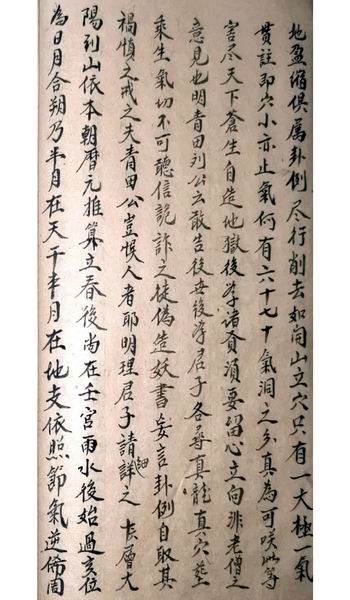 地盈縮俱属卦例尽行削去如开山立穴只有一大極一氣
貫註即穴小亦止氣何有六十七十氣洞之多真為可咲此等
害尽天下蒼生自造地獄後学诸賢須要留心立向非老僧之
意見也明青田刘公云敢告後母後学君子各尋真龍真穴塟
乘生氣切不可聽信詭詐之徒偽造妖書妄言卦例自取其
禍慎之戒之夫青田公豈悮人者耶明理君子請詳細之 长層大
陽到山依本朝曆元推算立春後尚在壬宮雨水後始過亥位
為日月合朔乃半月在天干半月在地支依照節氣逆佈周